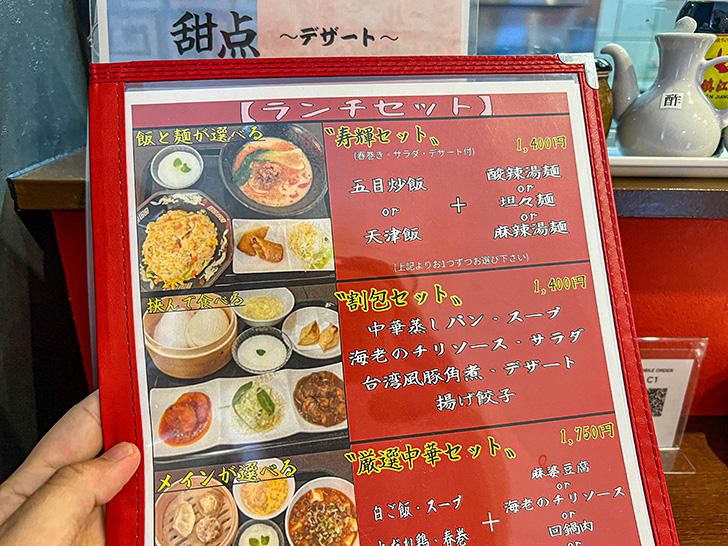 甜点 ～デザート～
酢
【ランチセット】
飯と麺が選べる
〝寿輝セット〟 1,400円
(春巻き・サラダ・デザート付)
五目炒飯
or
天津飯
+
酸辣湯麺
or
坦々麺
or
麻辣湯麺
(上記よりお1つずつお選び下さい)
挟んで食べる
〝割包セット〟 1,400円
中華蒸しパン・スープ
海老のチリソース・サラダ
台湾風豚角煮・デザート
揚げ餃子
メインが選べる
〝厳選中華セット〟 1,750円
白ご飯・スープ
よだれ鶏・春巻
+
麻婆豆腐
or
海老のチリソース
or
回鍋肉
or
MOBILE ORDER
C1